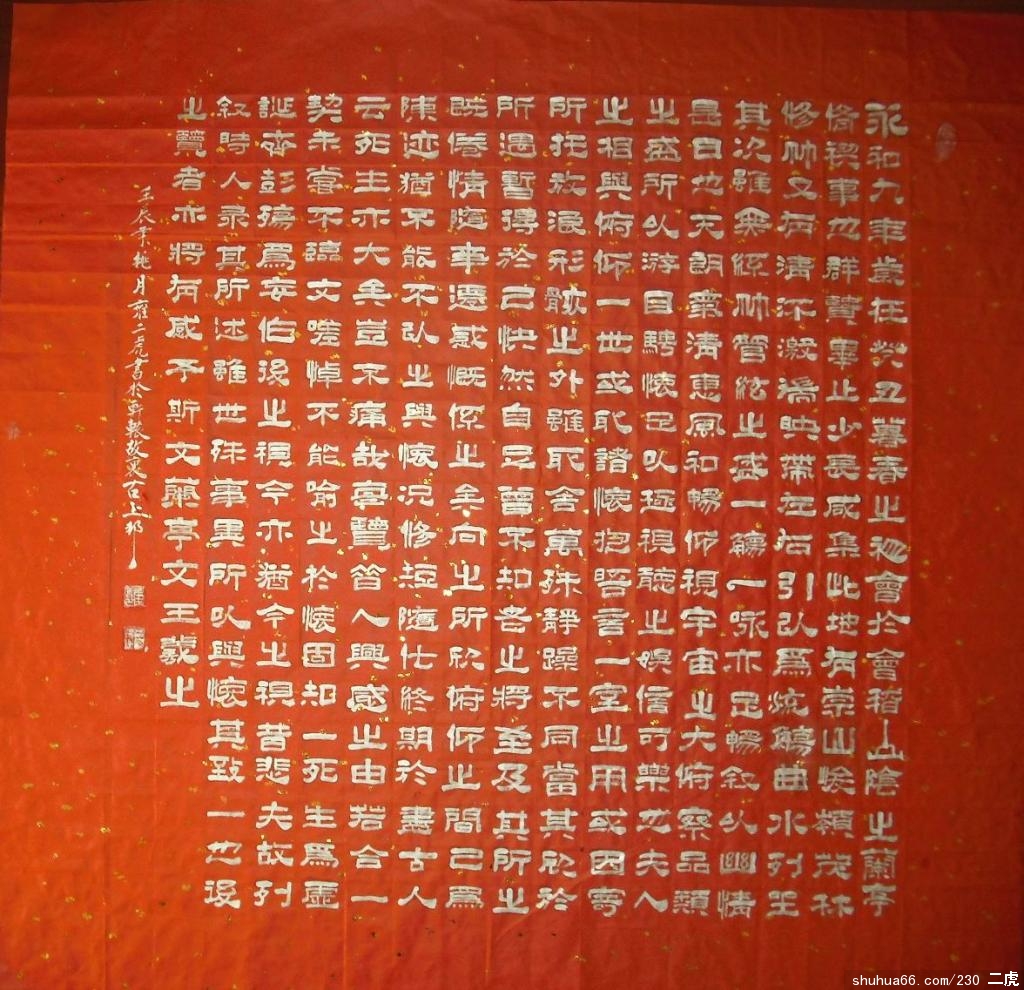 永和九年歲在癸丑暮春之初會於會稽山陰之蘭亭
脩禊事也群賢畢至少長咸集此地有崇山峻領茂林
修竹又有清流激湍映帶左右引以為流觴曲水列坐
其次雖無絲竹管絃之盛一觴一詠亦足暢叙以幽情
是日也天朗氣清惠風和暢仰視宇宙之大俯察品類
之盛所以游目騁懷足以極視聽之娛信可樂也夫人
之相與俯仰一世或取諸懷抱晤言一室之內或因寄
所托放浪形骸之外雖取舍萬殊靜躁不同當其欣於
所遇暫得於己快然自足曾不知老之將至及其所之
既倦情隨事遷感慨係之矣向之所欣俯仰之間已為
陳迹猶不能不以之興懷況修短隨化終期於盡古人
云死生亦大矣豈不痛哉每覽昔人興感之由若合一
契未嘗不臨文嗟悼不能喻之於懷固知一死生為虛
誕齊彭殤為妄作後之視今亦猶今之視昔悲夫故列
叙時人录其所述雖世殊事異所以興懷其致一也後
之覽者亦將有感予斯文蘭亭文王羲之
壬辰年桃月雍二虎書於軒轅故里古上邽
shuhua66.com/230 二虎